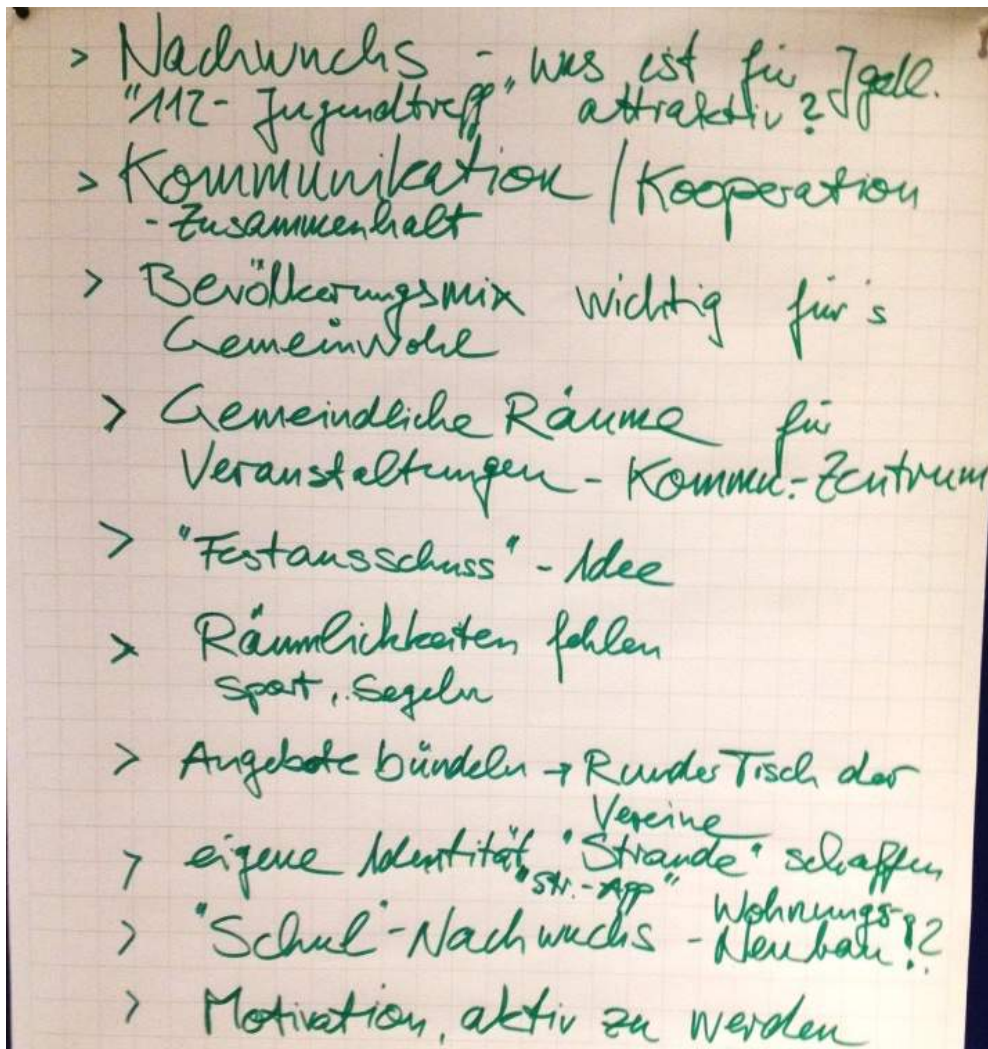 > Nachwuchs - was ist für Jgdl.
"112-Jugendtreff" attraktiv?
> Kommunikation / Kooperation
- Zusammenhalt
> Bevölkerungsmix wichtig für's
Gemeinwohl
> Gemeindliche Räume für
Veranstaltungen - Kommu.-Zentrum
> "Festausschuss" - Idee
> Räumlichkeiten fehlen
Sport, Segeln
> Angebote bündeln → Runder Tisch der
Vereine
> eigene Identität "Strande" schaffen
"Str.-App"
> "Schul"-Nachwuchs - Wohnungs-
Neubau!?
> Motivation, aktiv zu werden